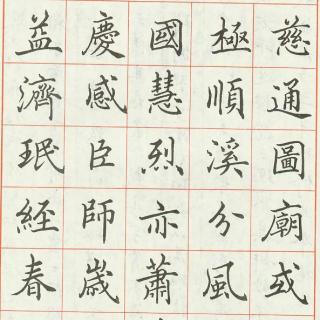 慈通圖廟或
極順溪分風
國慧烈亦蕭
慶感臣師歲
益濟珉經春